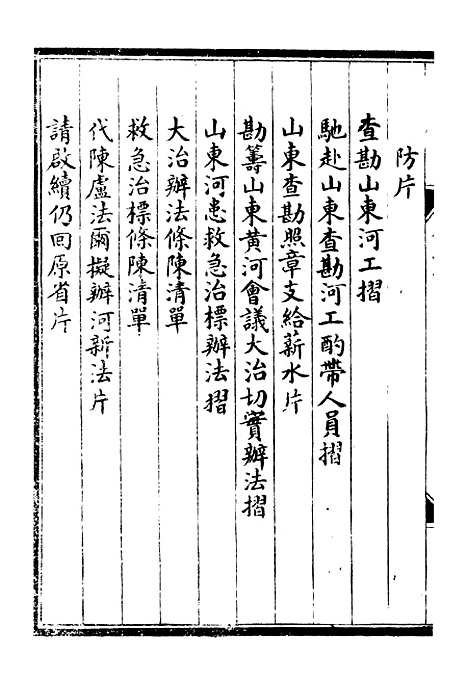 防片
查勘山東河工摺
馳赴山東查勘河工酌帶人員摺
山東查勘照章支給薪水片
勘籌山東黃河會議大治切實辦法摺
山東河患救急治標辦法摺
大治辦法條陳清單
救急治標條陳清單
代陳盧法爾擬辦河新法片
請啟續仍回原省片